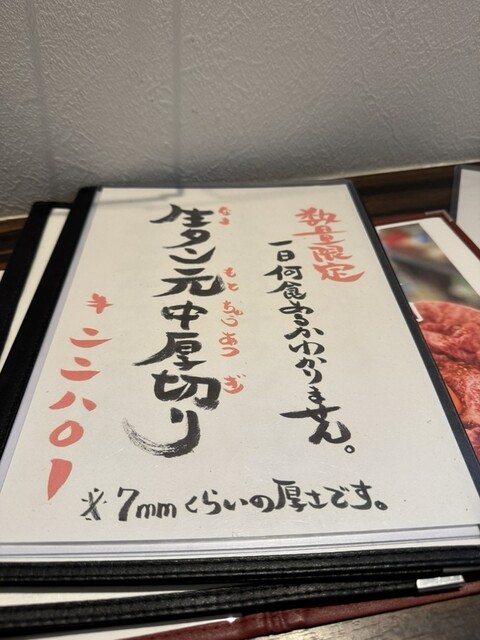 数量限定
一日何食あるかわかりません。
生タン元中厚切り
なま
もと
ちゅう
あつ
ぎ
¥二二八〇
※7mmくらいの厚さです。